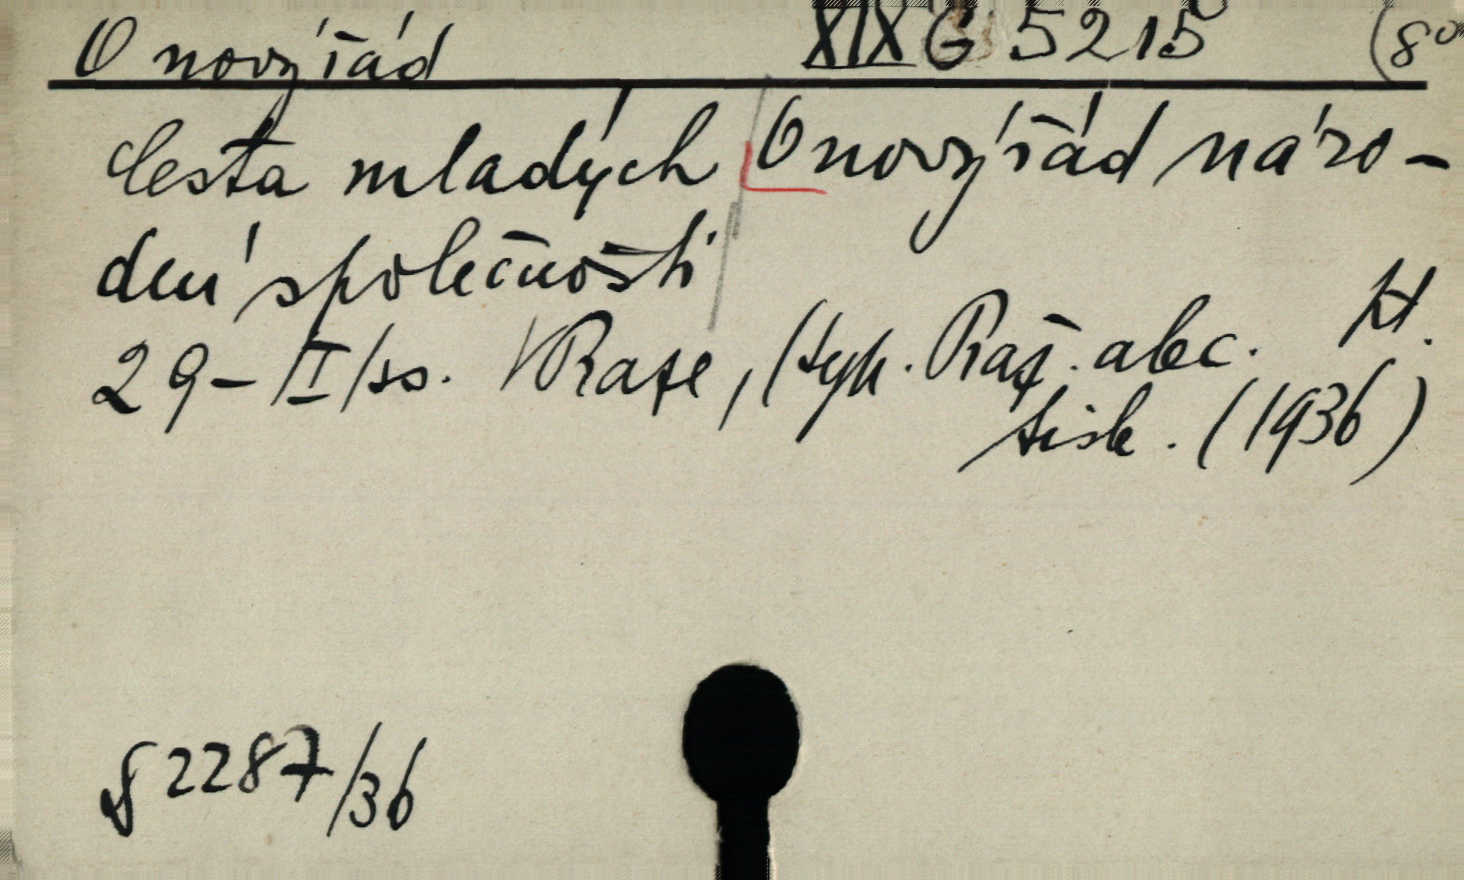 O nový řád XIX G 5215 (80
Cesta mladých O nový řád náro-
dní společnosti
29-II/ss. V Praze, (typ. Praž. akc. H.
tisk. (1936)
§ 2287/36